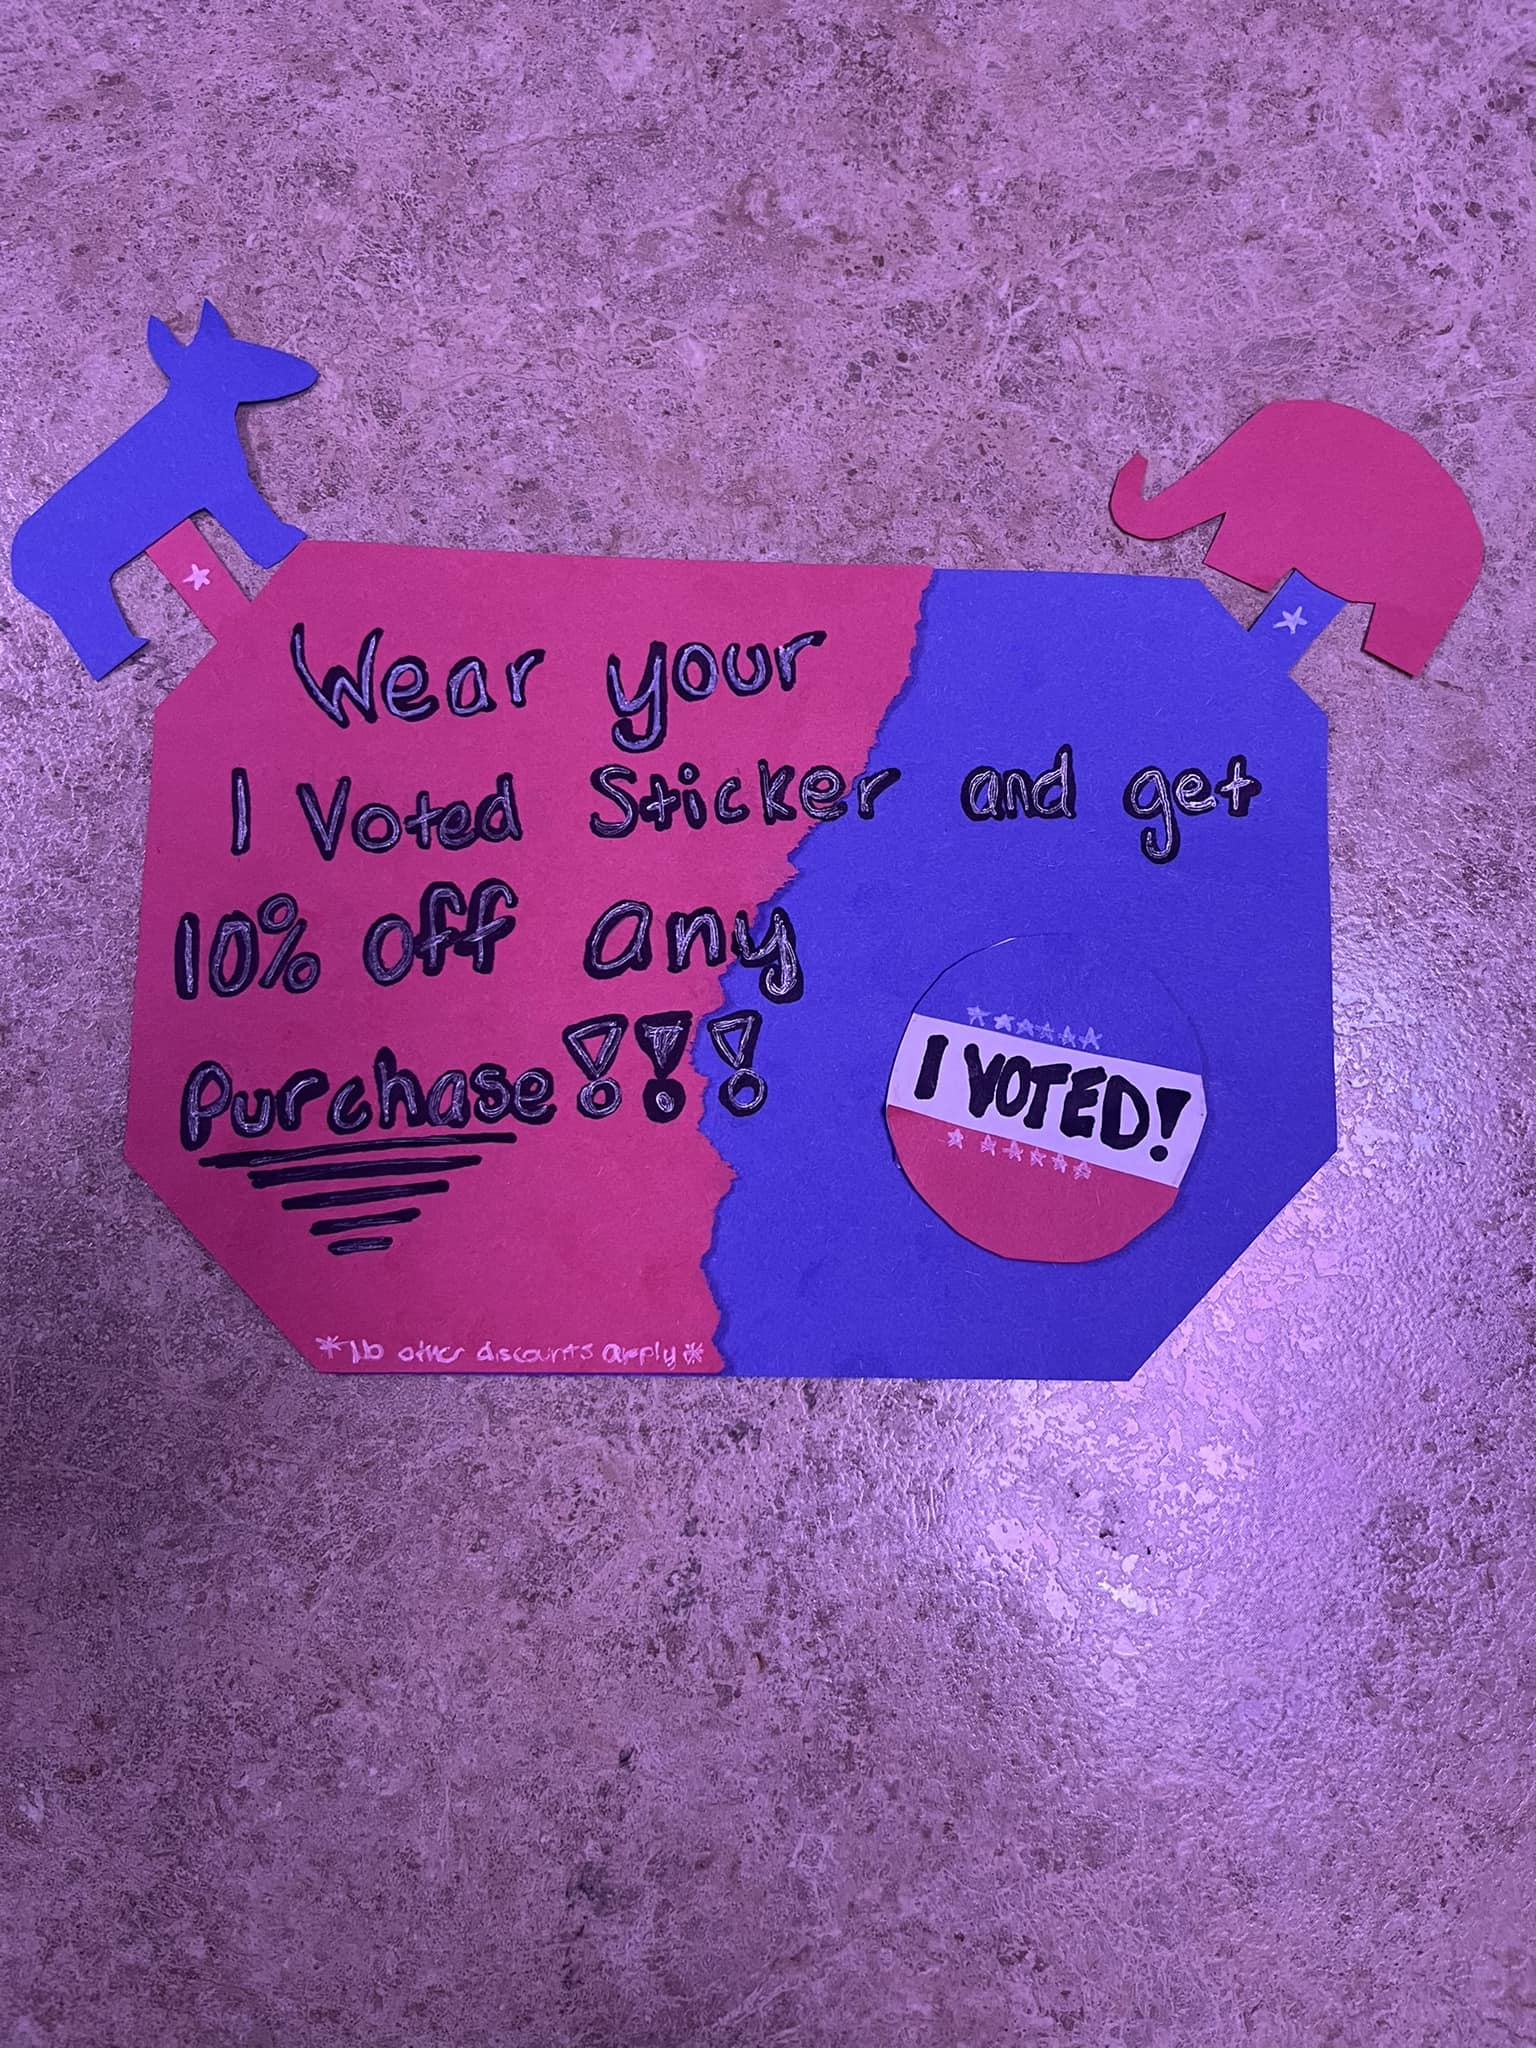 Wear your
I Voted Sticker and get
10% off any
Purchase!!!
I VOTED!
*No other discounts apply*